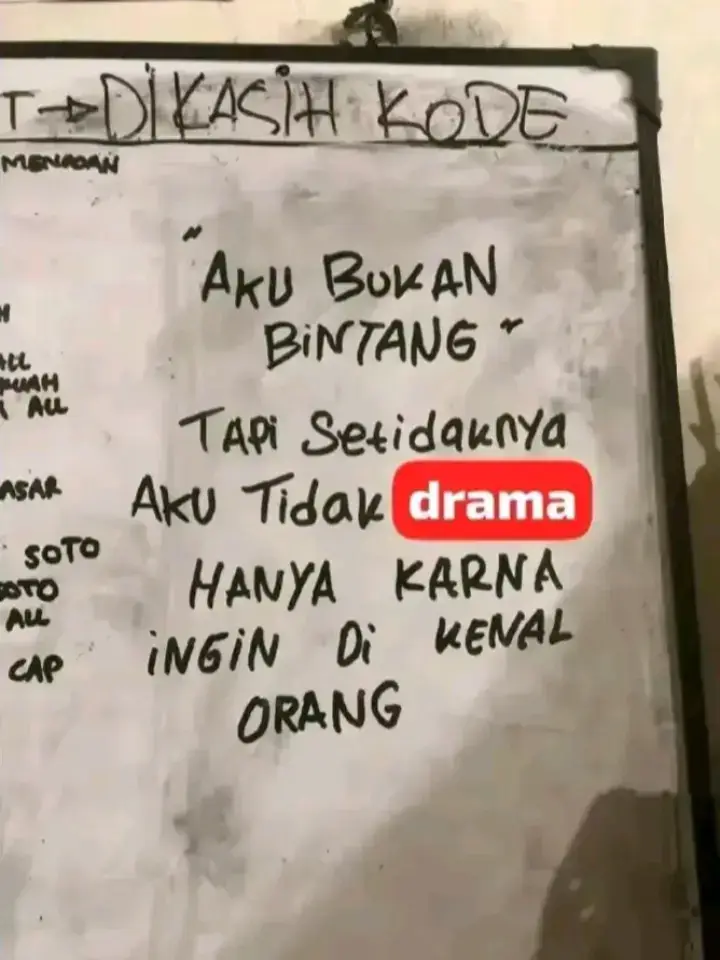 T → DIKASIH KODE
MENADAN
"AKU BUKAN
BINTANG"
ALL
KUAH
ALL
TAPI Setidaknya
ASAR
AKU Tidak drama
SOTO
HANYA KARNA
SOTO
ALL
INGIN Di KENAL
CAP
ORANG